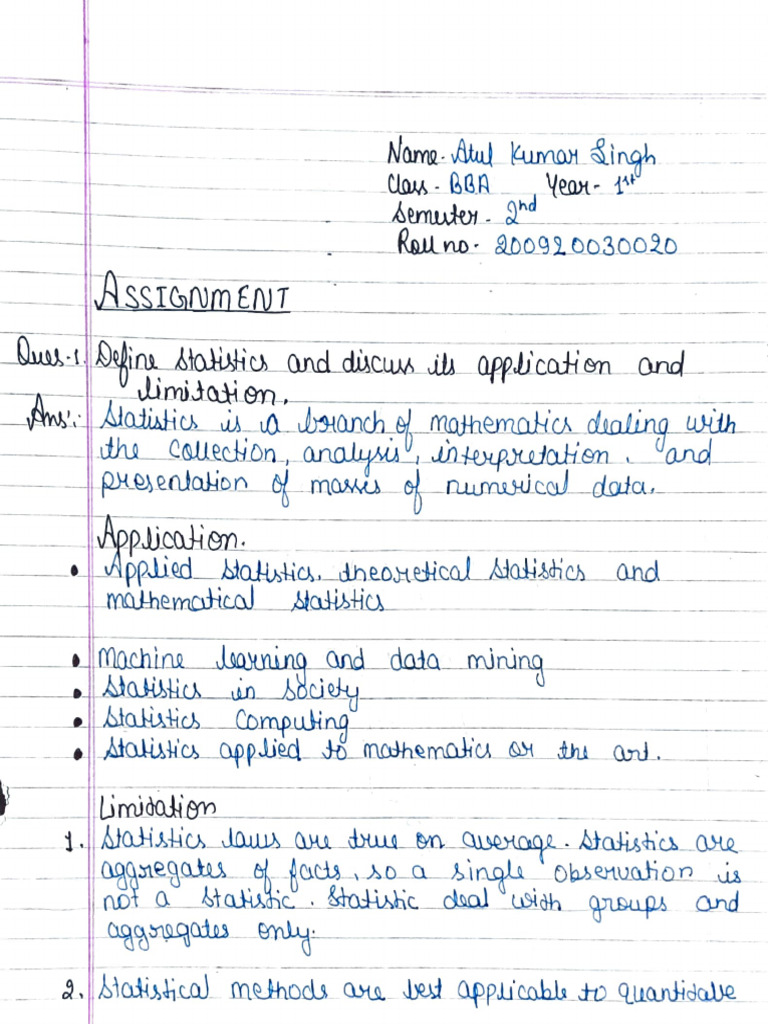 Name- Atul Kumar Singh
Class- BBA Year- 1st
Semester- 2nd
Roll no- 200920030020
ASSIGNMENT
Ques-1. Define statistics and discuss its application and
limitation.
Ans:- Statistics is a branch of mathematics dealing with
the collection, analysis, interpretation, and
presentation of masses of numerical data.
Application.
• Applied statistics, theoretical statistics and
mathematical statistics
• Machine learning and data mining
• Statistics in society
• Statistics Computing
• Statistics applied to mathematics or the art.
Limitation
1. Statistics laws are true on average. Statistics are
aggregates of facts, so a single observation is
not a statistic. Statistic deal with groups and
aggregates only.
2. Statistical methods are best applicable to quantidave